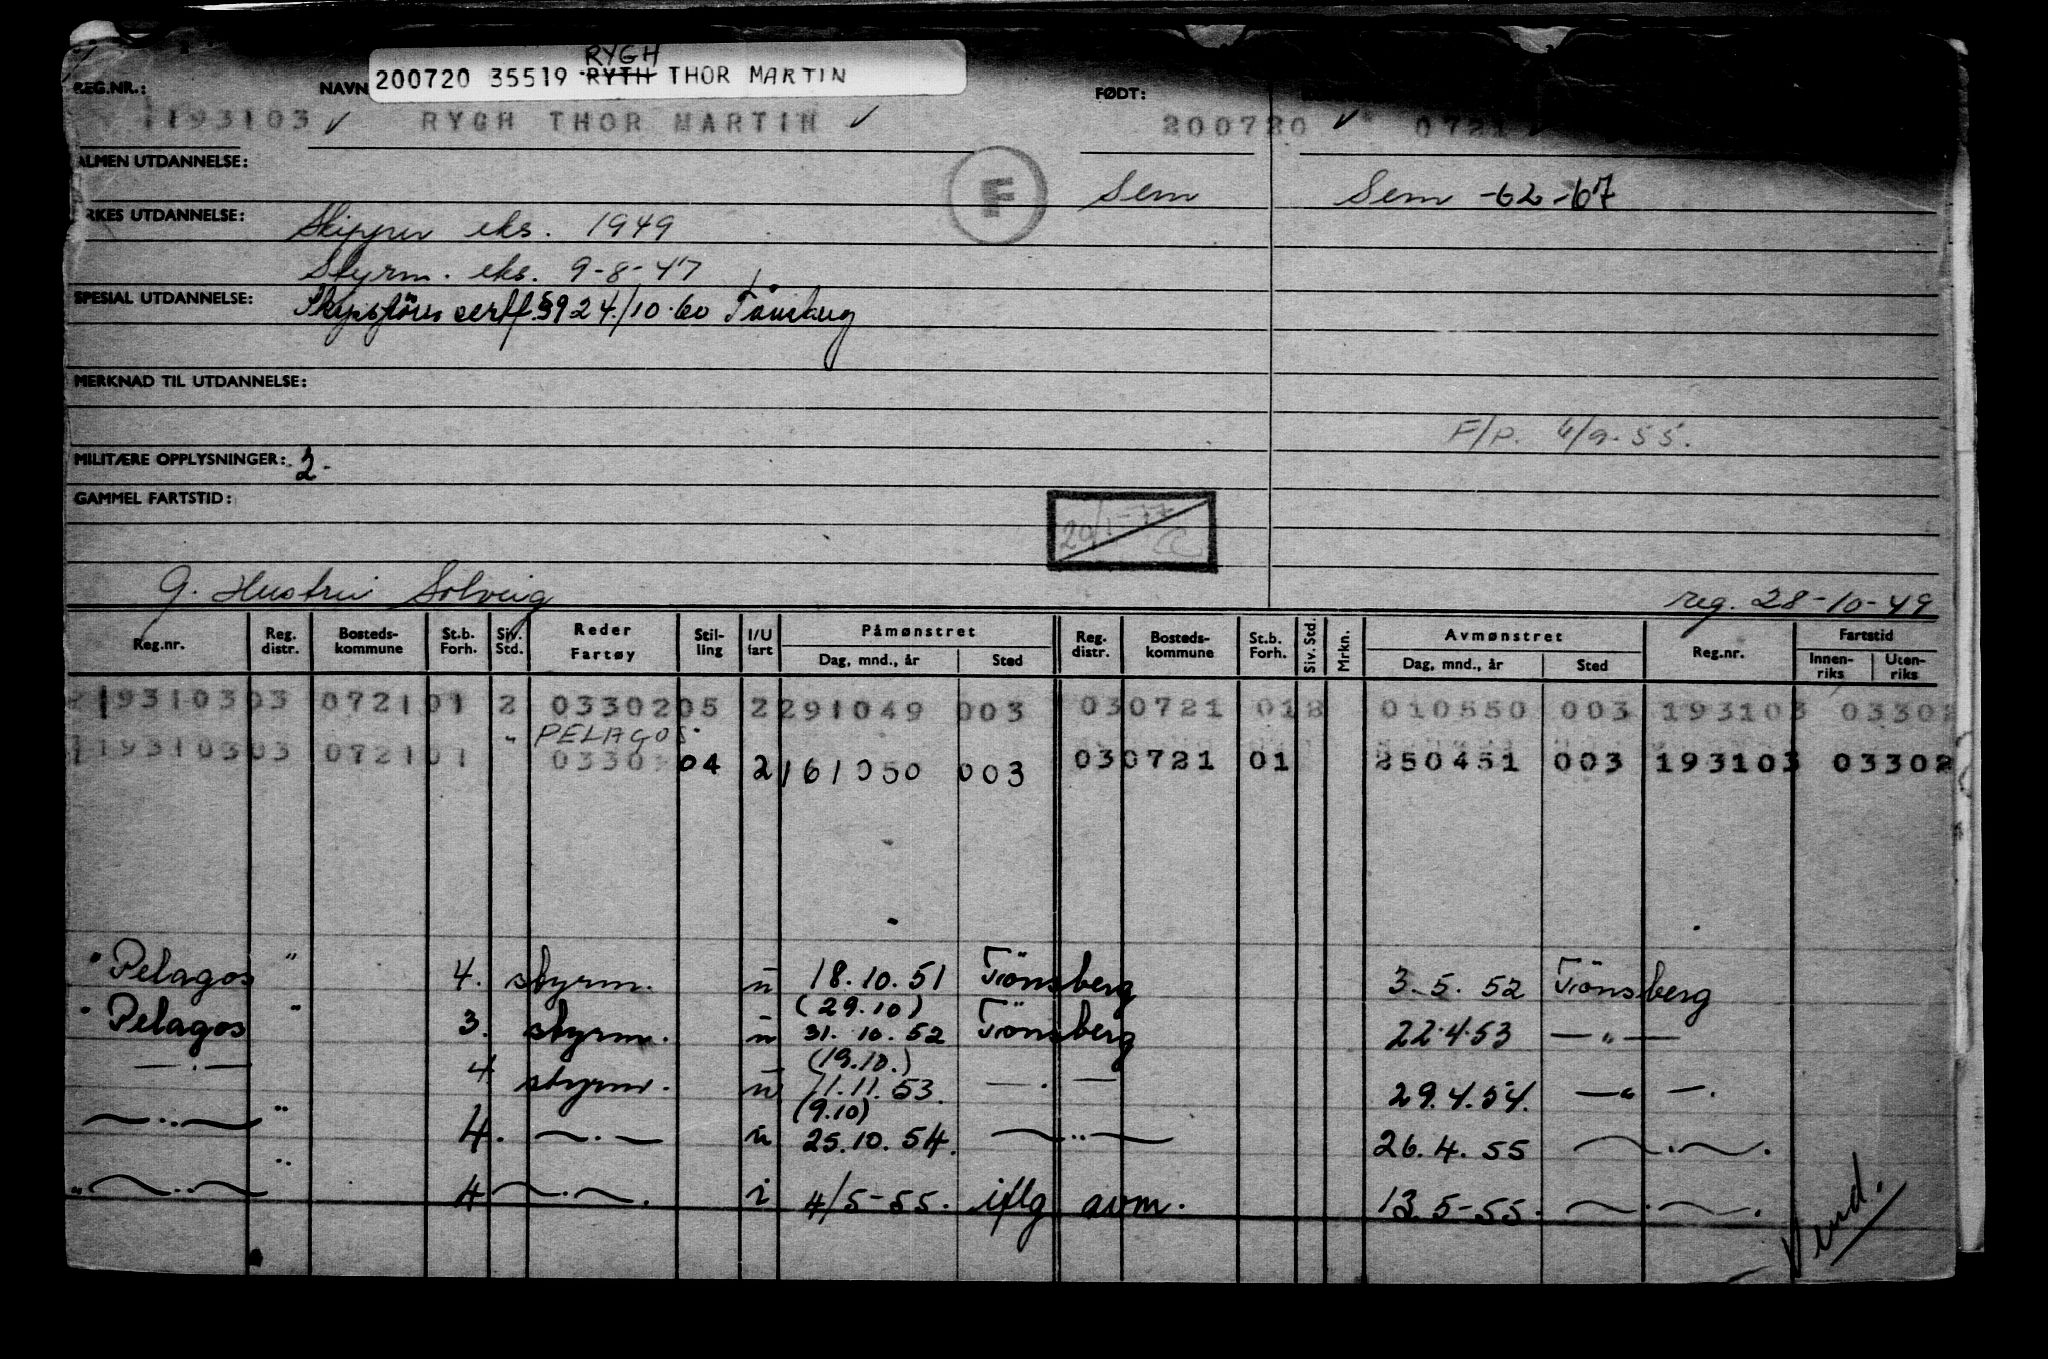 RYGH
200720 35519 RYTH THOR MARTIN
REG.NR.: NAVN FØDT:
193103 ✓ RYGH THOR MARTIN ✓ 200720 ✓ 0721
ALMEN UTDANNELSE:
F Sem Sem -62-67
RKES UTDANNELSE: Skipper eks. 1949
Styrm. eks. 9-8-47
SPESIAL UTDANNELSE: Skipsförer sertf. §9 24/10-60 Tönsberg
MERKNAD TIL UTDANNELSE:
F/p. 6/9-55.
MILITÆRE OPPLYSNINGER: 2-
GAMMEL FARTSTID:
20/1-77
G. Hustru Solveig reg. 28-10-49
Reg.nr. Reg. distr. Bosteds-kommune St.b. Forh. Siv. Std. Reder Fartøy Stil-ling I/U fart Påmønstret Dag, mnd., år Sted Reg. distr. Bosteds-kommune St.b. Forh. Siv. Std. Mrkn. Avmønstret Dag, mnd., år Sted Reg.nr. Fartstid Innen-riks Uten-riks
19310303 072101 2 03302 05 2 291049 003 030721 01 010550 003 193103 03302
" PELAGOS
19310303 072101 0330 04 2 161050 003 030721 01 250451 003 193103 03302
" Pelagos " 4. styrm. u 18.10.51 Tönsberg 3.5.52 Tönsberg
(29.10)
" Pelagos " 3. styrm. u 31.10.52 Tönsberg 22.4.53 — " —
(19.10.)
— . — 4 styrm. u 11.11.53. — . — 29.4.54. — " —.
(9.10)
— .. — " 4. — . — u 25.10.54. — .. — 26.4.55 — . —.
" — .. — " 4 — . —. i 4/5-55. iflg avm. 13.5-55. — . —.
Vend.